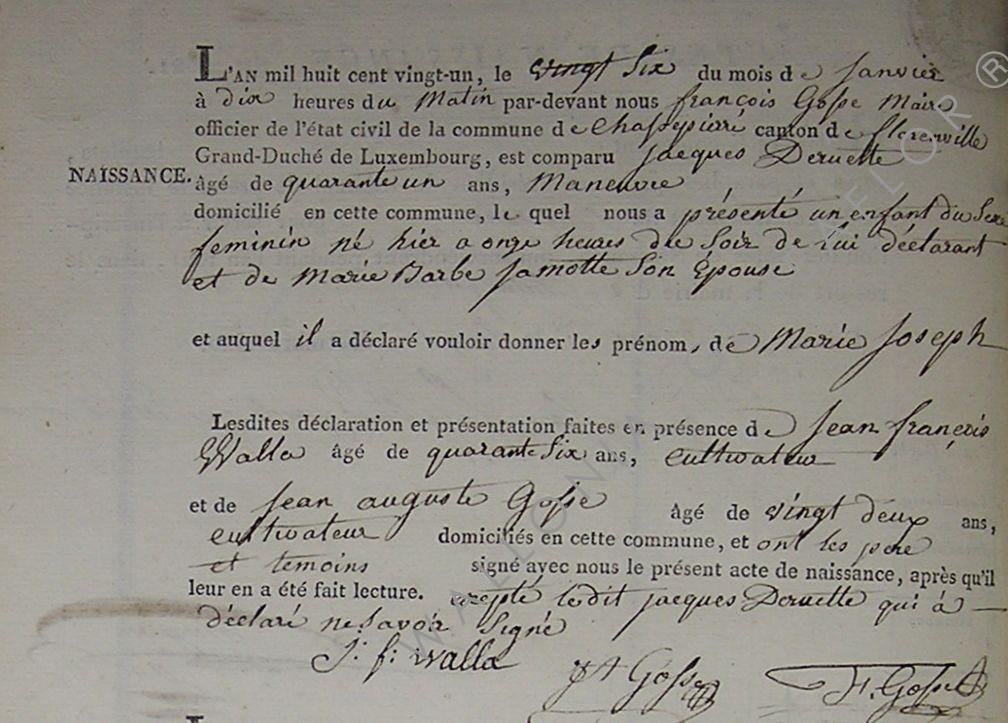 L'AN mil huit cent vingt-un, le vingt Six du mois de Janvier
à Dix heures du Matin par-devant nous françois Gosse Maire
officier de l'état civil de la commune de Chassepierre canton de florenville
Grand-Duché de Luxembourg, est comparu Jacques Deruette
NAISSANCE. âgé de quarante un ans, Maneuvre
domicilié en cette commune, le quel nous a présenté un enfant du Sexe
feminin né hier a onze heures du Soir de Lui déclarant
et de Marie Barbe Jamotte Son Épouse
et auquel il a déclaré vouloir donner les prénoms de Marie Joseph
Lesdites déclaration et présentation faites en présence de Jean françois
Walla âgé de quarante Six ans, cultivateur
et de Jean auguste Gosse âgé de vingt deux ans,
cultivateur domiciliés en cette commune, et ont les pere
et temoins signé avec nous le présent acte de naissance, après qu'il
leur en a été fait lecture. excepté ledit jacques Deruette qui à
déclaré ne Savoir Signé
J: f: Walla JA Gosse F. Gosse